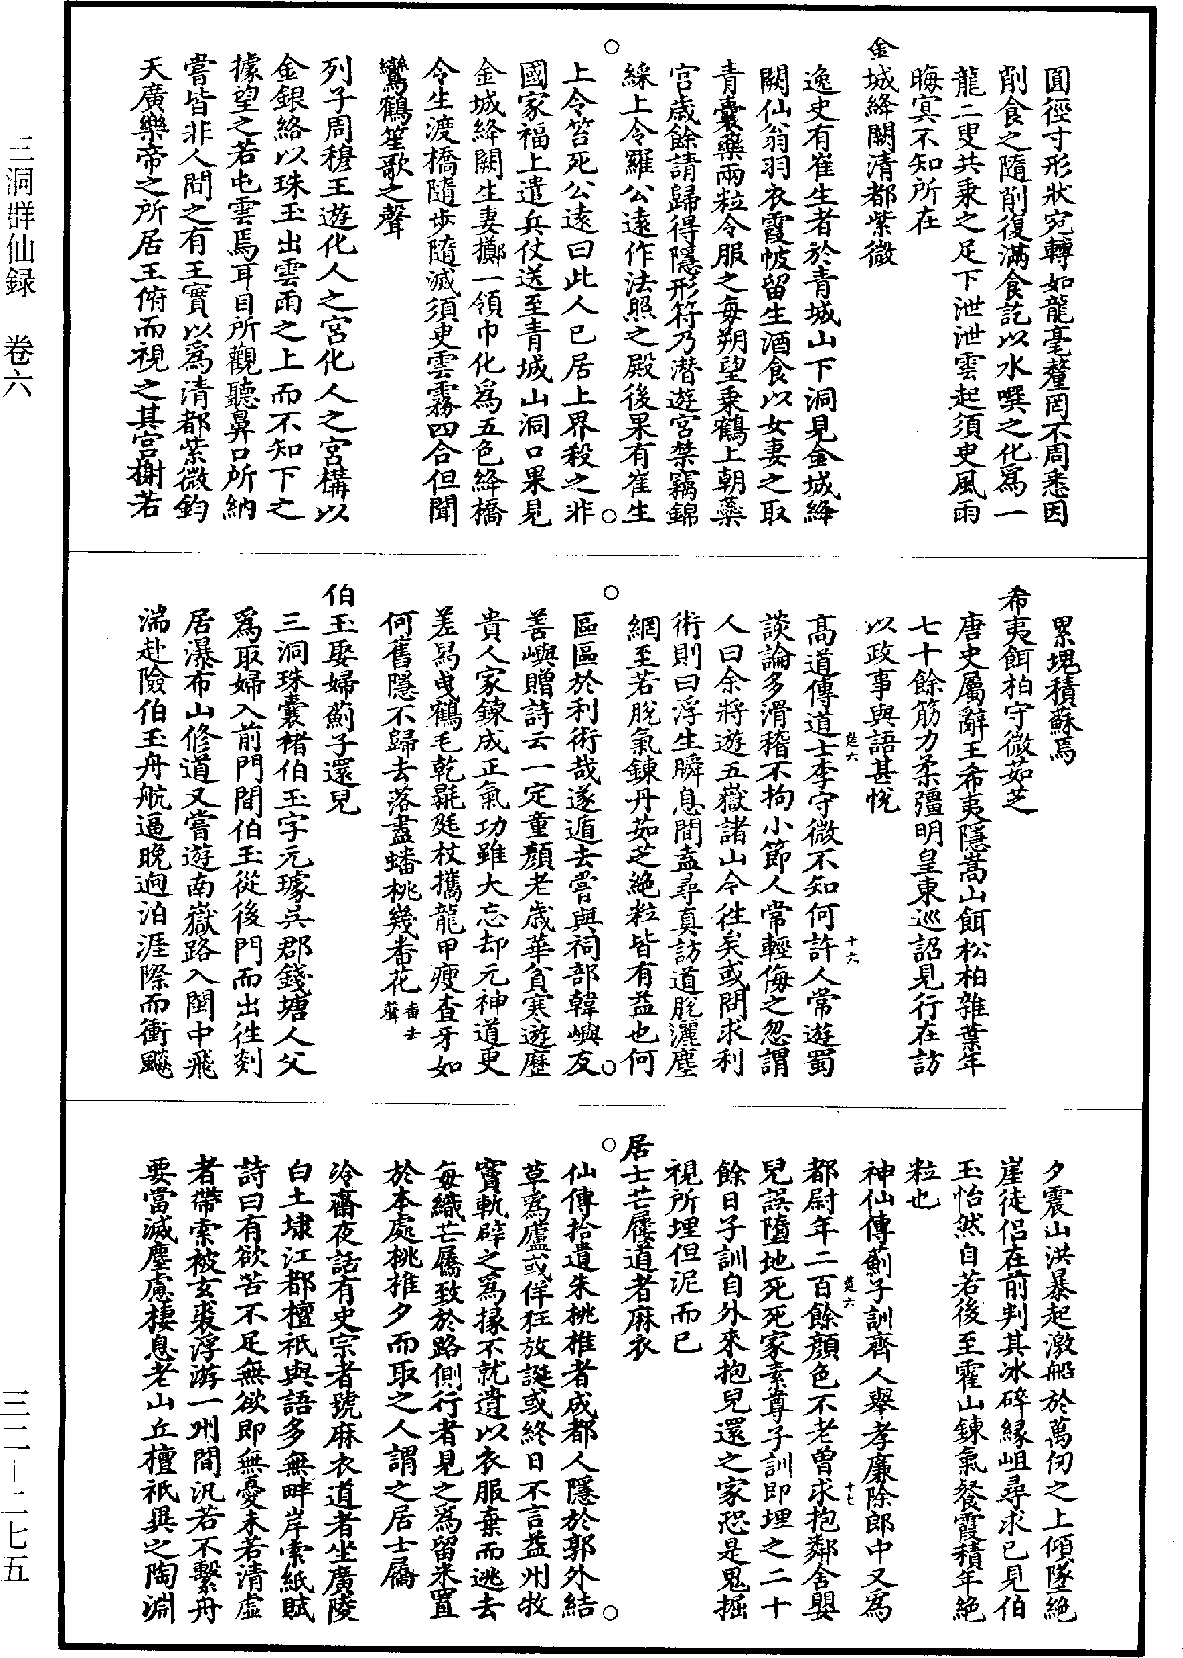 圓徑寸形狀宛轉如龍毫釐罔不周悉因
削食之隨削復滿食訖以水噀之化爲一
龍二叟共乘之足下泄泄雲起須臾風雨
晦㝠不知所在
金城絳闕清都紫微
逸史有崔生者於青城山下洞見金城絳
闕仙翁羽衣霞帔留生酒食以女妻之取
青囊藥兩粒令服之每朔望乘鶴上朝蘂
宫歲餘請歸得隱形符乃潜遊宫禁竊錦
綵上令羅公遠作法照之殿後果有崔生
上令笞死公遠曰此人已居上界殺之非
國家福上遣兵仗送至青城山洞口果見
金城絳闕生妻擲一領巾化爲五色絳橋
令生渡橋隨步隨滅須臾雲霧四合但聞
鸞鶴笙歌之聲
列子周穆王遊化人之宫化人之宫構以
金銀絡以珠玉出雲雨之上而不知下之
據望之若屯雲焉耳目所觀聽鼻口所納
嘗皆非人間之有王實以爲清都紫微鈞
天廣樂帝之所居王俯而視之其宫榭若
累塊積蘇焉
希夷餌柏守微茹芝
唐史屬辭王希夷隱嵩山餌松柏雜葉年
七十餘筋力柔彊明皇東巡詔見行在訪
以政事與語甚悅
高道傳道士李守微不知何許人常遊蜀
談論多滑稽不拘小節人常輕侮之忽謂
人曰余將遊五嶽諸山令往矣或問求利
術則曰浮生瞬息間盍尋真訪道脫灑塵
網至若脫氣鍊丹茹芝絶粒皆有益也何
區區於利術哉遂遁去嘗與祠部韓嶼友
善嶼贈詩云一定童顔老歲華貧寒遊歷
貴人家鍊成正氣功雖大忘却元神道更
差舄曵鶴毛乾毾㲪杖攜龍甲瘦查牙如
何舊隱不歸去落盡蟠桃幾番花番去聲
伯玉娶婦薊子還兒
三洞珠囊褚伯玉字元璩吳郡錢塘人父
爲取婦入前門間伯玉從後門而出往剡
居瀑布山修道又嘗遊南嶽路入閩中飛
湍赴險伯玉舟航逼晚迥泊涯際而衝飈
夕震山洪暴起激船於萬仞之上傾墜絶
崖徒侣在前判其冰碎緣岨尋求已見伯
玉怡然自若後至霍山鍊氣餐霞積年絶
粒也
神仙傳薊子訓齊人舉孝廉除郎中又爲
都尉年二百餘顔色不老曾求抱鄰舍嬰
兒誤墮地死死家素尊子訓即埋之二十
餘日子訓自外來抱兒還之家恐是鬼掘
視所埋但泥而已
居士芒屨道者麻衣
仙傳拾遺朱桃椎者成都人隱於郭外結
草爲廬或佯狂放誕或終日不言益州牧
竇軌辟之爲掾不就遺以衣服棄而逃去
每織芒屩致於路側行者見之爲留米置
於本處桃椎夕而取之人謂之居士屩
冷齋夜話有史宗者號麻衣道者坐廣陵
白土埭江都檀祗與語多無畔岸索紙賦
詩曰有欲苦不足無欲即無憂未若清虛
者帶索被玄裘浮游一州間汎若不繫舟
要當滅塵慮棲息老山丘檀祇與之陶淵
三洞群仙録 卷六
三二—二七五